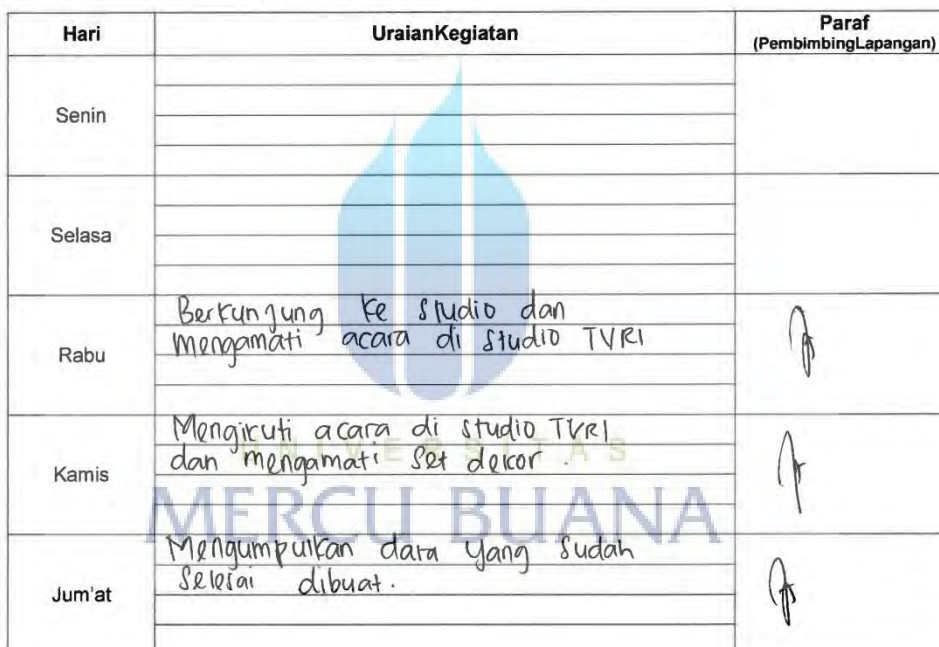 Hari UraianKegiatan Paraf
(PembimbingLapangan)
Senin
Selasa
Rabu
Berkunjung ke studio dan
mengamati acara di studio TVRI
Kamis
Mengikuti acara di studio TVRI
dan mengamati set dekor.
UNIVERSITAS
MERCU BUANA
Jum'at
Mengumpulkan data yang sudah
selesai dibuat.